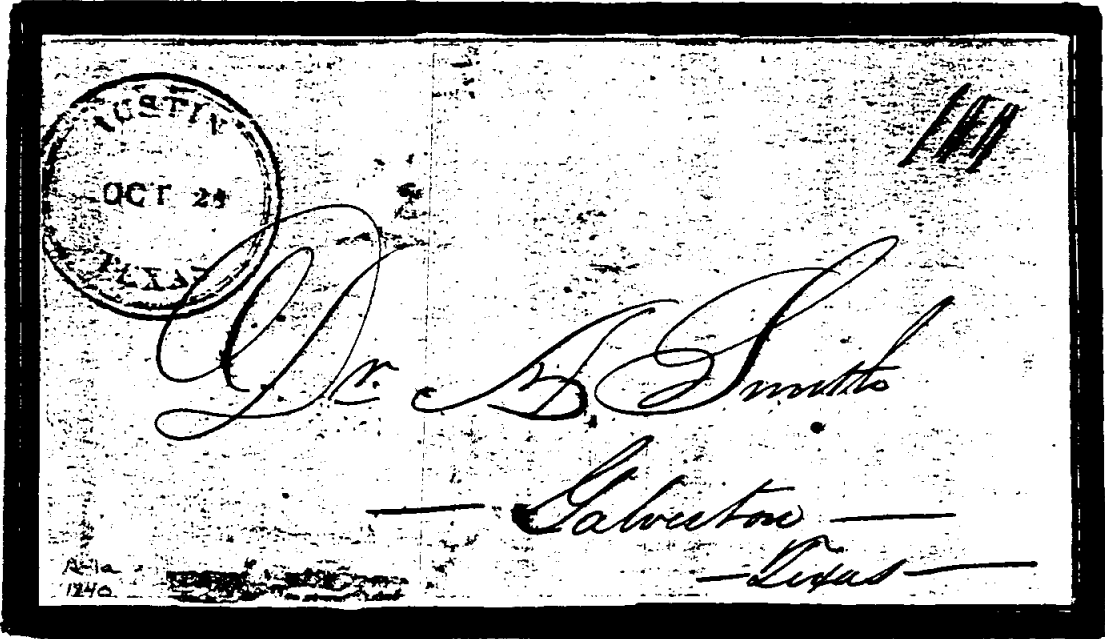 AUSTIN
OCT 24
TEXAS
Dr. A. Smith
Galveston
Texas
A-1a
1840